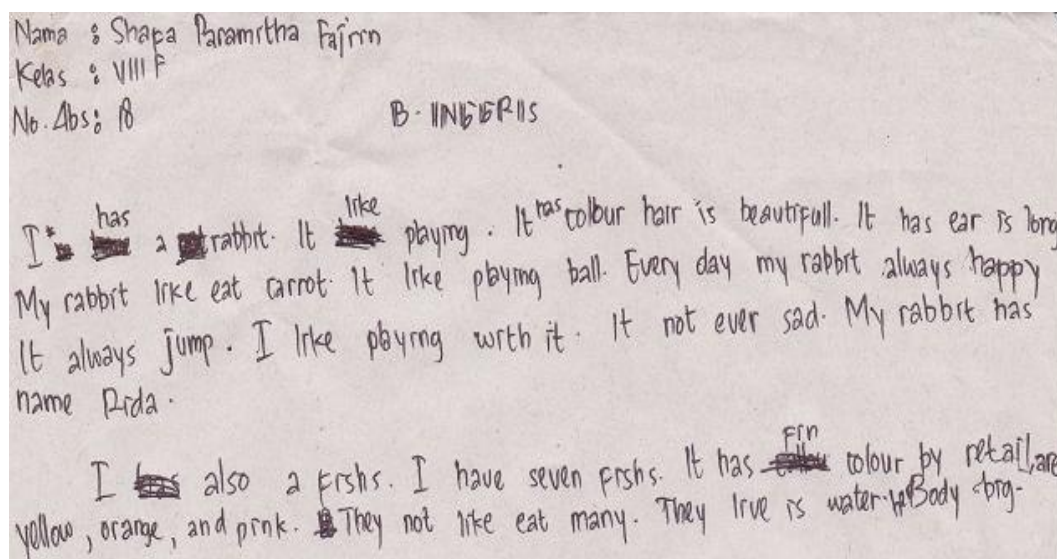 Nama : Shafa Paramitha Fajrin
Kelas : VIII F
No. Abs : 18
B. INGGRIS
I has a rabbit. It like playing. It has colour hair is beautifull. It has ear is long
My rabbit like eat carrot. It like playing ball. Every day my rabbit always happy
It always jump. I like playing with it. It not ever sad. My rabbit has
name Rida.
I also a fishs. I have seven fishs. It has fin colour by retail, are
yellow, orange, and pink. They not like eat many. They live is water. Body big.